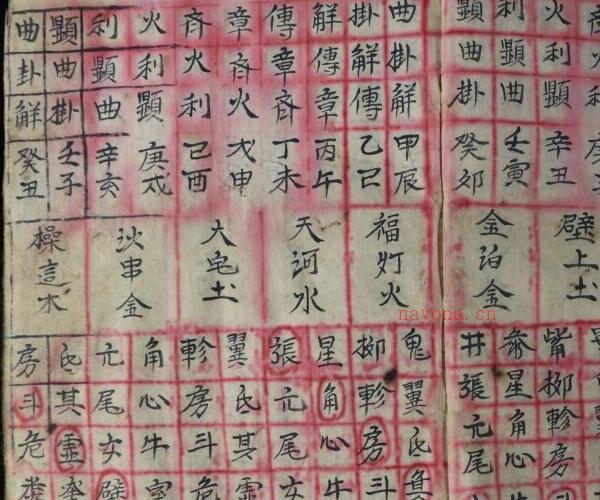 火利顯辛丑
壁上土
觜柳軫房
利顯曲壬寅
參星角心
顯曲卦癸卯
金泊金
井張亢尾
曲卦解甲辰
卦解傳乙巳
福灯火
鬼翼氐
柳軫房斗
解傳章丙午
傳章斉丁未
天河水
星角心牛
張亢尾女
章斉火戊申
斉火利己酉
大宅土
翼氐其虛
軫房斗危
火利顯庚戌
利顯曲辛亥
串金
角心牛室
亢尾女壁
顯曲卦壬子
曲卦解癸丑
操這木
氐其虛奎
房斗危婁
navona.cn